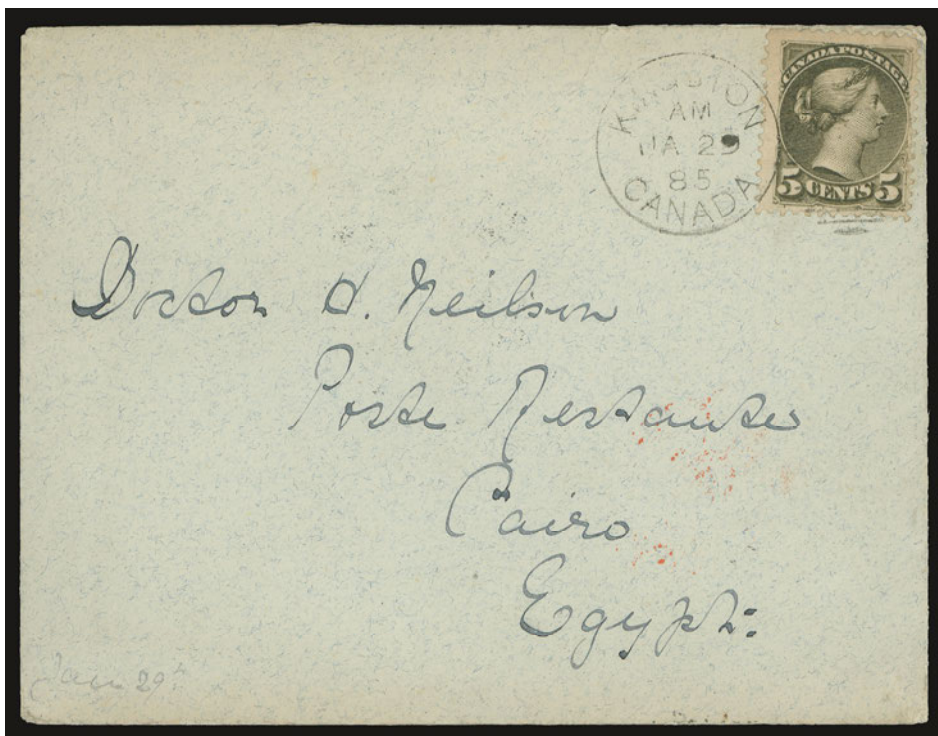 KINGSTON
AM
JA 29
85
CANADA
CANADA POSTAGE
5 CENTS 5
Doctor H. Neilson
Poste Restante
Cairo
Egypt.
Jan 29th